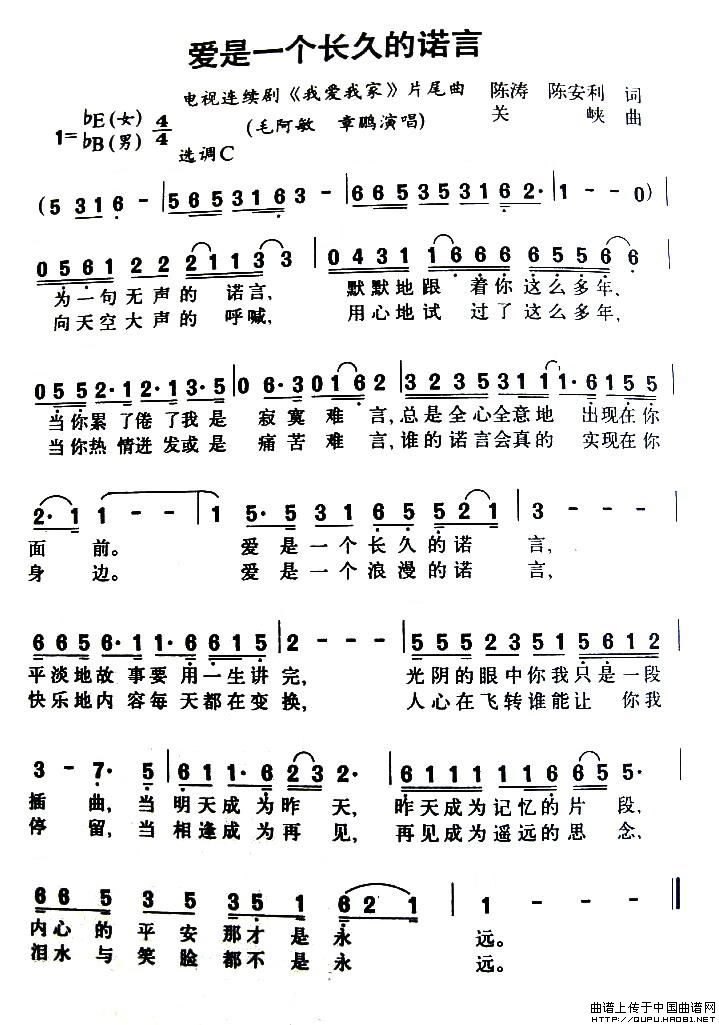 爱是一个长久的诺言
电视连续剧《我爱我家》片尾曲 陈涛 陈安利 词
1=♭E(女) 4/4 (毛阿敏 章鹏演唱) 关峡 曲
♭B(男)
选调C
(5 316 - | 565316 3 - | 665353162· | 1 - - 0) |
0561 22 2113 3 | 0431 1666 6556 6 |
为一句无声的 诺言, 默默地跟 着你这么多年,
向天空大声的 呼喊, 用心地试 过了这么多年,
055 2·12·13·5 | 06·3 016 2 | 3235311 1·6155 |
当你累了倦了我是 寂寞难言,总是全心全意地 出现在你
当你热情迸发或是 痛苦难言,谁的诺言会真的 实现在你
2·1 1 - - | 1 5·5 31 65 521 | 3 - - - |
面 前。 爱是一个长久的诺 言,
身 边。 爱是一个浪漫的诺 言,
665 6·11·6 615 | 2 - - - | 555 235 15612 |
平淡地故事要用一生讲 完, 光阴的眼中你我只是一段
快乐地内容每天都在变 换, 人心在飞转谁能让 你我
3 - 7· 5 | 611·6 23 2· | 6111 12165 5· |
插 曲, 当 明天成为昨 天, 昨天成为记忆的片 段,
停 留, 当 相逢成为再 见, 再见成为遥远的思 念,
66 5 3 5 35 1 621 | 1 - - - ‖
内心的平安那才是永 远。
泪水与笑脸都不是永 远。
曲谱上传于中国曲谱网
HTTP://QUPU.HAO81.NET